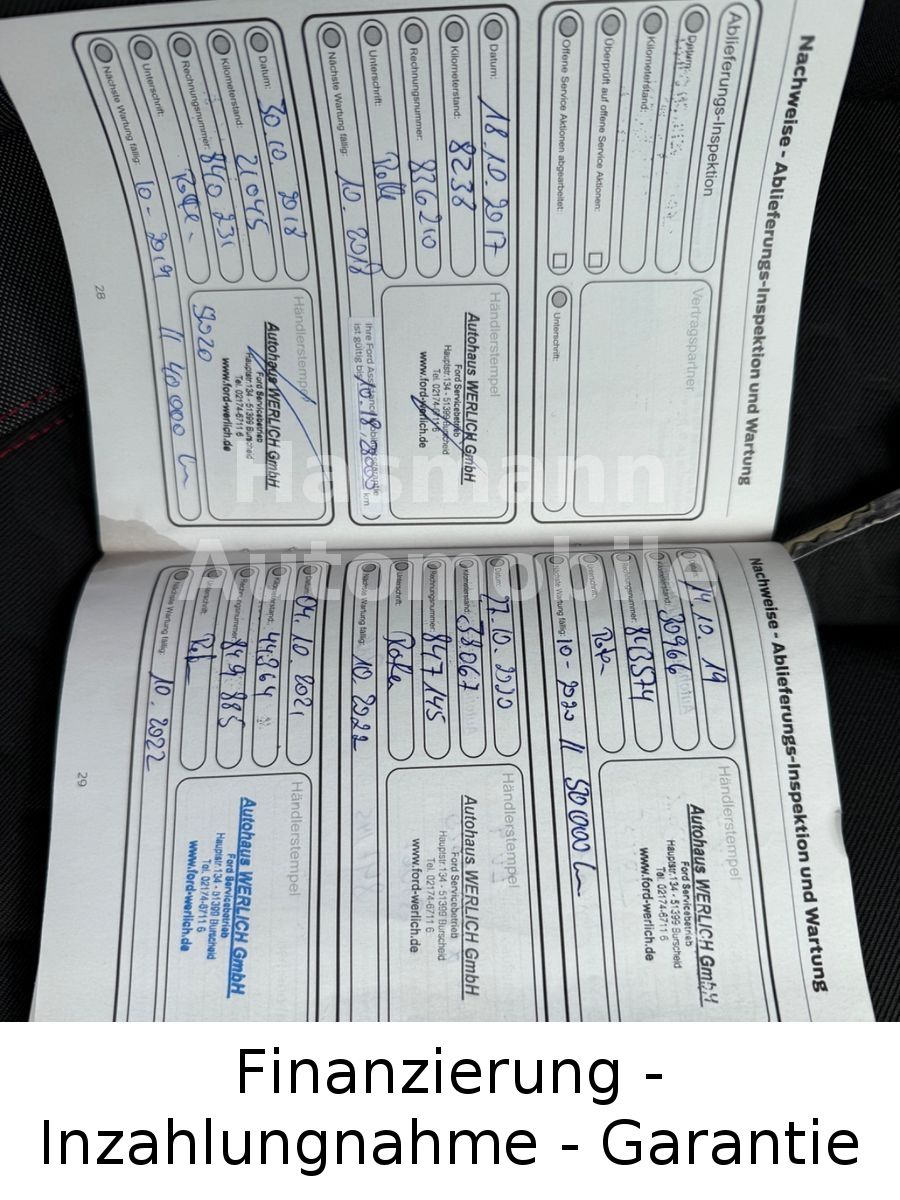 Nachweise - Ablieferungs-Inspektion und Wartung
Ablieferungs-Inspektion
Datum:
Kilometerstand:
Überprüft auf offene Service Aktionen:
Offene Service Aktionen abgearbeitet:
Vertragspartner
Unterschrift:
Datum: 18.10.2017
Kilometerstand: 8238
Rechnungsnummer: 836210
Unterschrift:
Nächste Wartung fällig: 10. 2018
Händlerstempel
Autohaus WERLICH GmbH
Ford Servicebetrieb
Hauptstr.134 - 51399 Burscheid
Tel. 02174-6711 6
www.ford-werlich.de
Ihre Ford Assistance Mobilitätsgarantie
ist gültig bis
km
Datum: 30.10 2018
Kilometerstand: 21045
Rechnungsnummer: 840 231
Unterschrift:
Nächste Wartung fällig: 10 - 2019 // 40 000 km
Händlerstempel
Autohaus WERLICH GmbH
Ford Servicebetrieb
Hauptstr.134 - 51399 Burscheid
Tel. 02174-6711 6
www.ford-werlich.de
28
Nachweise - Ablieferungs-Inspektion und Wartung
Datum: 14.10. 19
Kilometerstand: 30966
Rechnungsnummer:
Unterschrift:
Nächste Wartung fällig: 10 - 2020 // 50 000 km
Händlerstempel
Autohaus WERLICH GmbH
Ford Servicebetrieb
Hauptstr.134 - 51399 Burscheid
Tel. 02174-6711 6
www.ford-werlich.de
Datum: 27.10.2020
Kilometerstand: 38067
Rechnungsnummer: 847145
Unterschrift:
Nächste Wartung fällig: 10. 2022
Händlerstempel
Autohaus WERLICH GmbH
Ford Servicebetrieb
Hauptstr.134 - 51399 Burscheid
Tel. 02174-6711 6
www.ford-werlich.de
Datum: 04.10.2021
Kilometerstand: 44864
Rechnungsnummer: 849 885
Unterschrift:
Nächste Wartung fällig: 10. 2022
Händlerstempel
Autohaus WERLICH GmbH
Ford Servicebetrieb
Hauptstr.134 - 51399 Burscheid
Tel. 02174-6711 6
www.ford-werlich.de
29
Hasmann
Automobile
Finanzierung -
Inzahlungnahme - Garantie